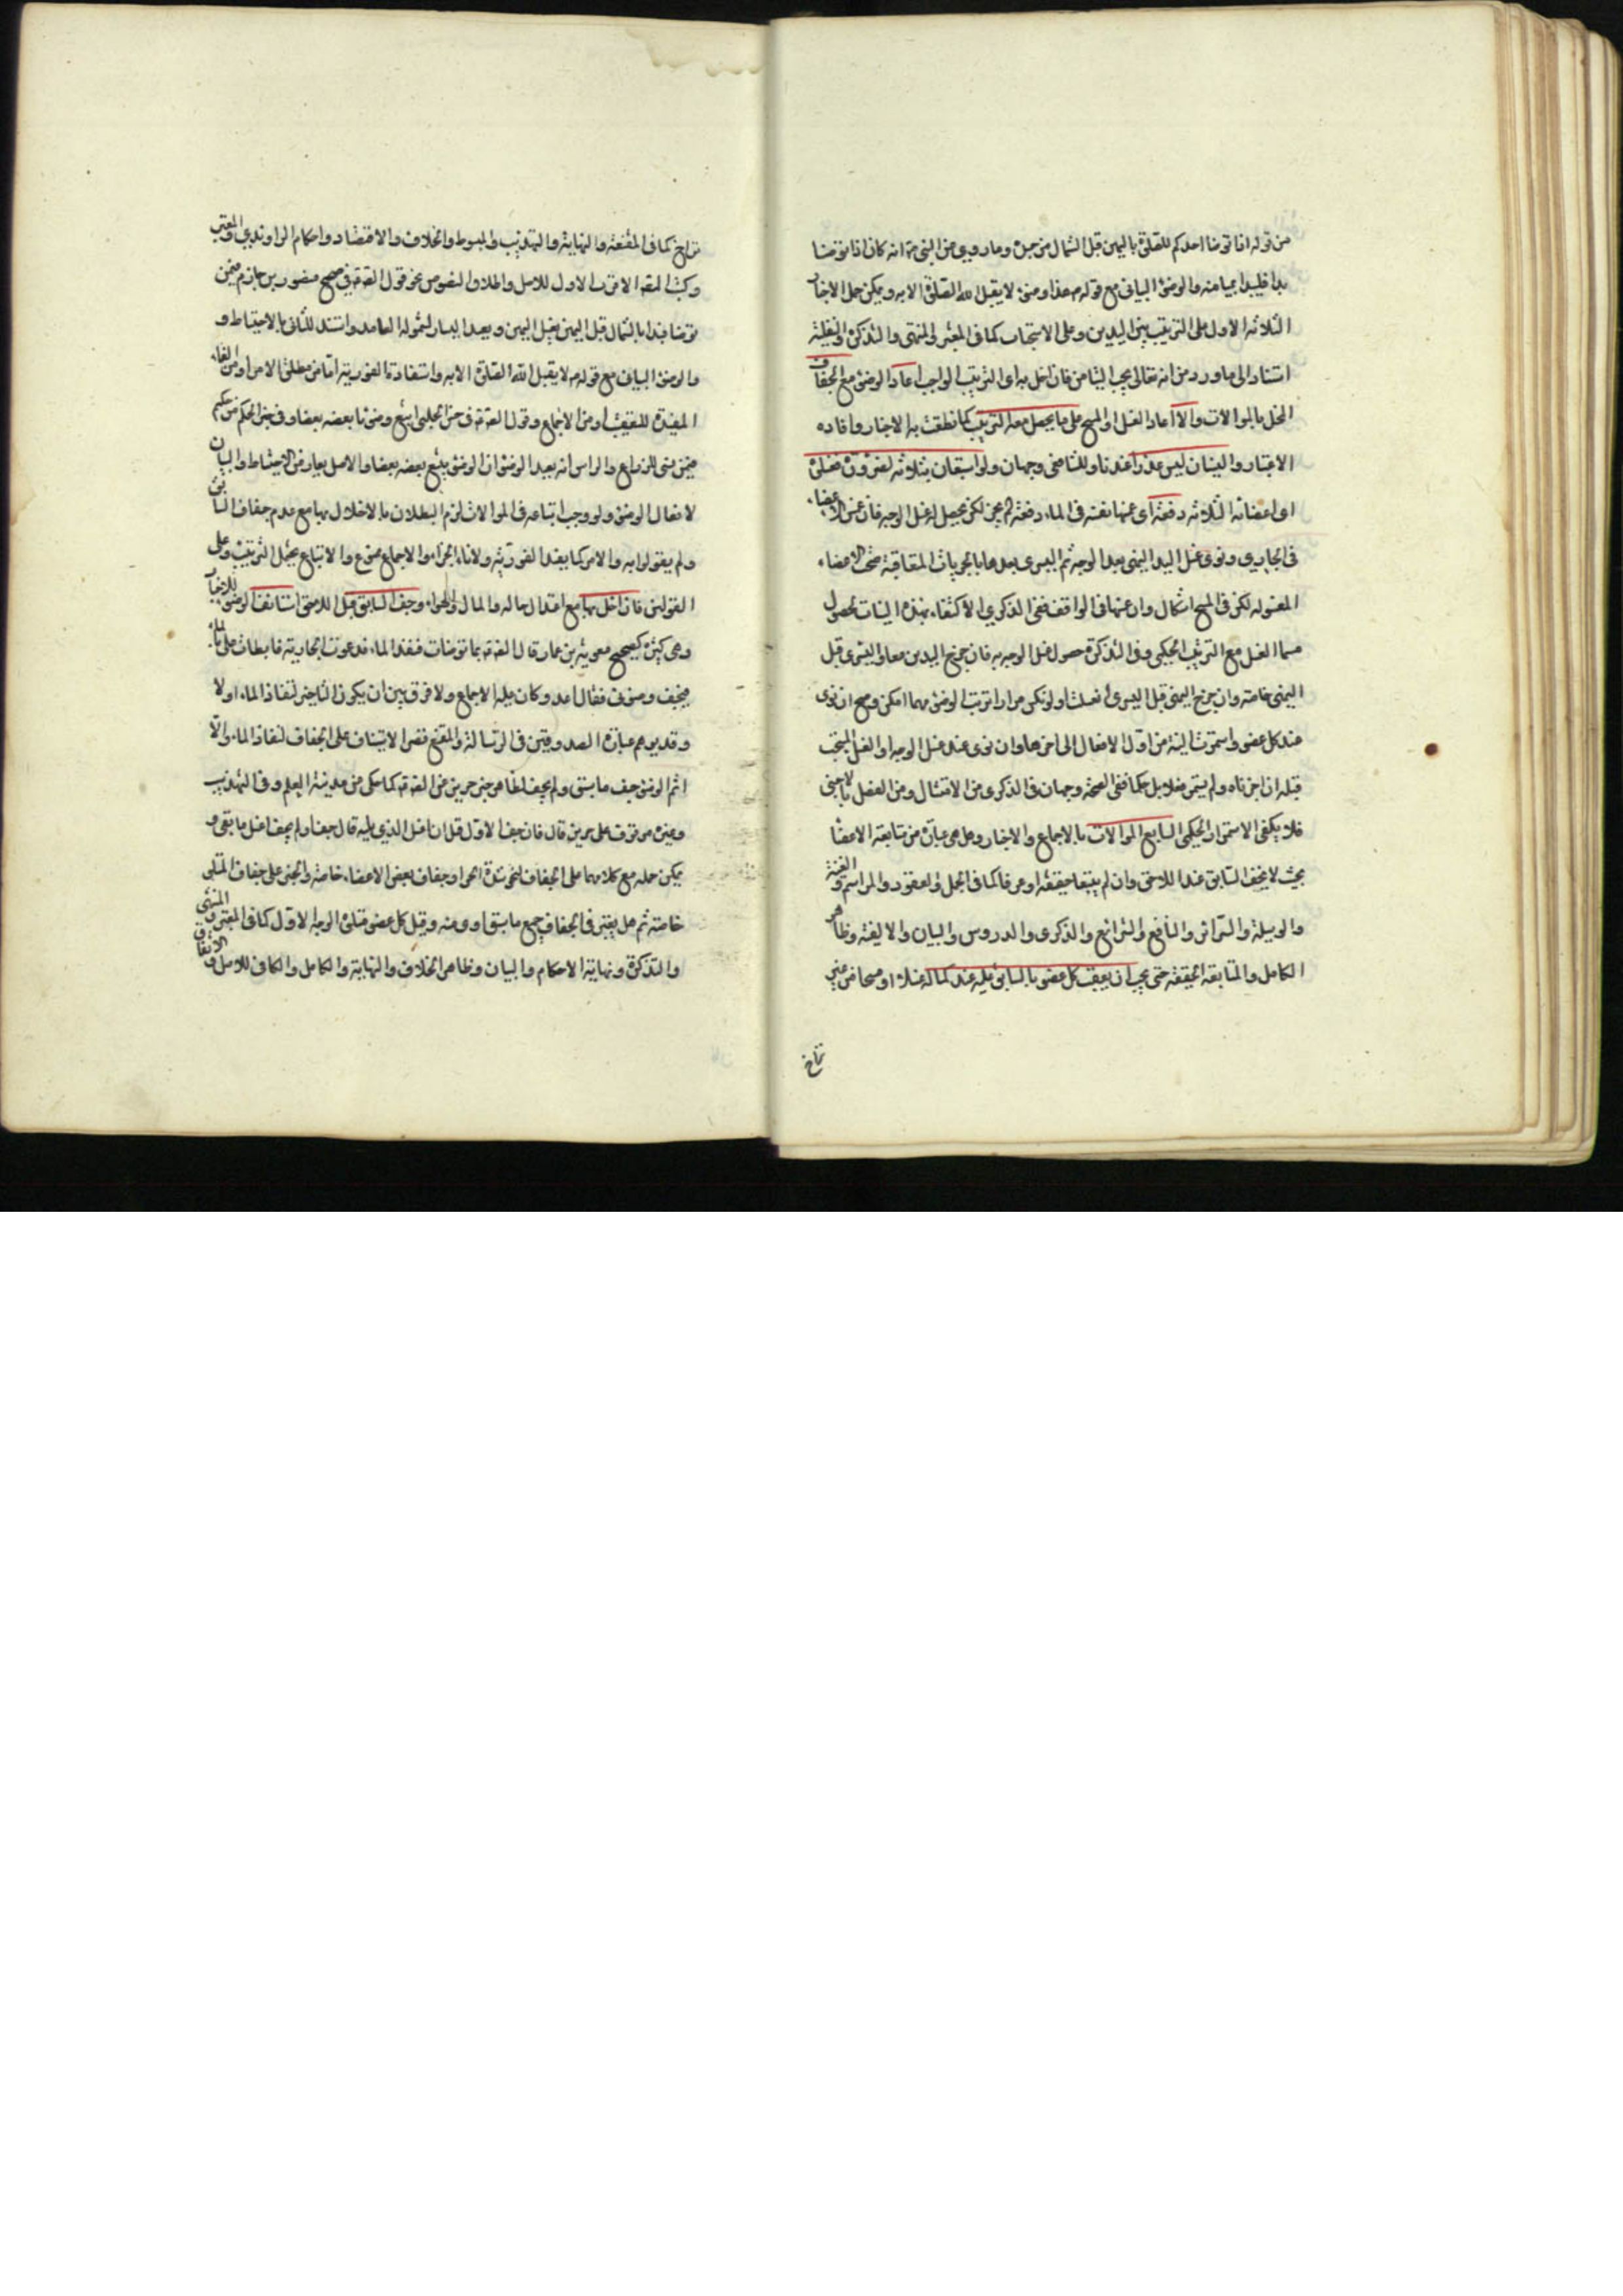 من قوله اذا توضا احدكم للصلوة باليمين قبل الشمال من جسده وما روي من ان النبي ص انه كان اذا توضا
بدا بميامنه والوضوء البياني مع قوله ص هذا وضوء لا يقبل الله الصلوة الا به ويمكن حمل الاخبار
الثلاثة الاول على الترتيب بين اليدين وعلى الاستحباب كما في المعتبر والمنتهى والتذكرة
استنادا الى ما ورد من انه تعالى يحب التيامن فان اخل به اي الترتيب الواجب اعاد الوضوء مع الجفاف
المخل بالموالات والا اعاد الغسل او المسح على ما يحصل معه الترتيب كما نطقت به الاخبار وافاده
الاعتبار والنسيان ليس عذرا عندنا وللشافعي وجهان ولو استعان بثلاثة لضرورة فغسلوا
اعضائه الثلاثة دفعة اي غمس نفسه في الماء دفعة لم يجز لكن يحصل له غسل الوجه فان غمس الاعضاء
في الجاري ونوى غسل اليد اليمنى بعد الوجه ثم اليسرى بعدها بالجريات المتعاقبة صحت الاعضاء
المغسولة لكن في المسح اشكال وان غمسها في الواقف ففي الذكرى الاكتفاء بهذه النيات لحصول
مسمى الغسل مع الترتيب الحكمي وفي التذكرة حصول غسل الوجه به فان خرج اليدين معا واليسرى قبل
اليمنى خاصة وان خرج اليمنى قبل اليسرى ولو نكس مرارا ترتب الوضوء مهما امكن وصح ان نوى
عند كل عضو واستمرت النية من اول الافعال الى اخرها وان نوى عند غسل الوجه او الغسل المستحب
قبله ان اجزناه ولم يستمر فعلا بل حكما ففي الصحة وجهان في الذكرى من الامتثال ومن الفصل باجنبي
فلا يكفي الاستمرار الحكمي السابع الموالات بالاجماع والاخبار وهل هي عبارة من متابعة الاعضا
بحيث لا يجف السابق عند اللاحق وان لم يتبعها حقيقة او عرفا كما في الجمل والعقود والمراسم والغنية
والوسيلة والسرائر والنافع والشرائع والذكرى والدروس والبيان والالفية وظاهر
الكامل والمتابعة الحقيقية حتى يجب ان يعقب كل عضو بالسابق عليه عند كماله غسلا او مسحا من غير
تراخ
تراخ كما في المقنعة والنهاية والتهذيب والمبسوط والخلاف والاقتصاد واحكام الراوندي والمعتبر
وكتب المصنف الاقرب الاول للاصل واطلاق النصوص نحو قول الصادق ع في صحيح منصور بن حازم فيمن
توضا فبدا بالشمال قبل اليمين يغسل اليمين ويعيد اليسار لشموله العامد واستند للثاني بالاحتياط و
والوضوء البياني مع قوله ص لا يقبل الله الصلوة الا به واستفادة الفورية اما من مطلق الامر او من الفاء
المفيدة للتعقيب او من الاجماع وقول الصادق ع في حسن الحلبي اتبع وضوئك بعضه بعضا وفي خبر الحكم بن حكيم
فيمن نسى الذراع والراس انه يعيد الوضوء ان الوضوء يتبع بعضه بعضا والاصل يعارض الاحتياط والبيان
لافعال الوضوء ولو وجب اتباعه في الموالات لزم البطلان بالاخلال بها مع عدم جفاف السابق
ولم يقولوا به والامر كما يفيد الفورية ولا فاء الجزاء والاجماع ممنوع والاتباع يحتمل الترتيب وعلى
القولين فان اخل بها مع اعتدال حاله والحال والهواء وجف السابق قبل اللاحق استانف الوضوء للاخبار
وهي كثيرة كصحيح معوية بن عمار قال للصادق ع ربما توضات فنفد الماء فدعوت الجارية فابطات علي بالماء
فيجف وضوئي فقال اعد وكان عليه الاجماع ولا فرق بين ان يكون التاخير لنفاد الماء او لا
وقد يوهم عبارة الصدوقين في الرسالة والمقنع قصر الاستيناف على الجفاف لنفاد الماء والا
اتم الوضوء جف ما سبق ولم يجف لظاهر خبر حريز عن الصادق ع كما حكى من مدينة العلم وفي التهذيب
وغيره موقوف على حريز قال فان جف الاول قبل ان اغسل الذي يليه قال جف او لم يجف اغسل ما بقي و
يمكن حمله مع كلامهما على الجفاف لنحو شدة الحر او جفاف بعض الاعضاء خاصة والخبر على جفاف المتلى
خاصة ثم هل يعتبر في الجفاف جميع ما سبق او بعضه وقبل كل عضو متلوه الوجه الاول كما في المعتبر والمنتهى
والتذكرة ونهاية الاحكام والبيان وظاهر الخلاف والنهاية والكامل والكافي للاصل والاتفاق